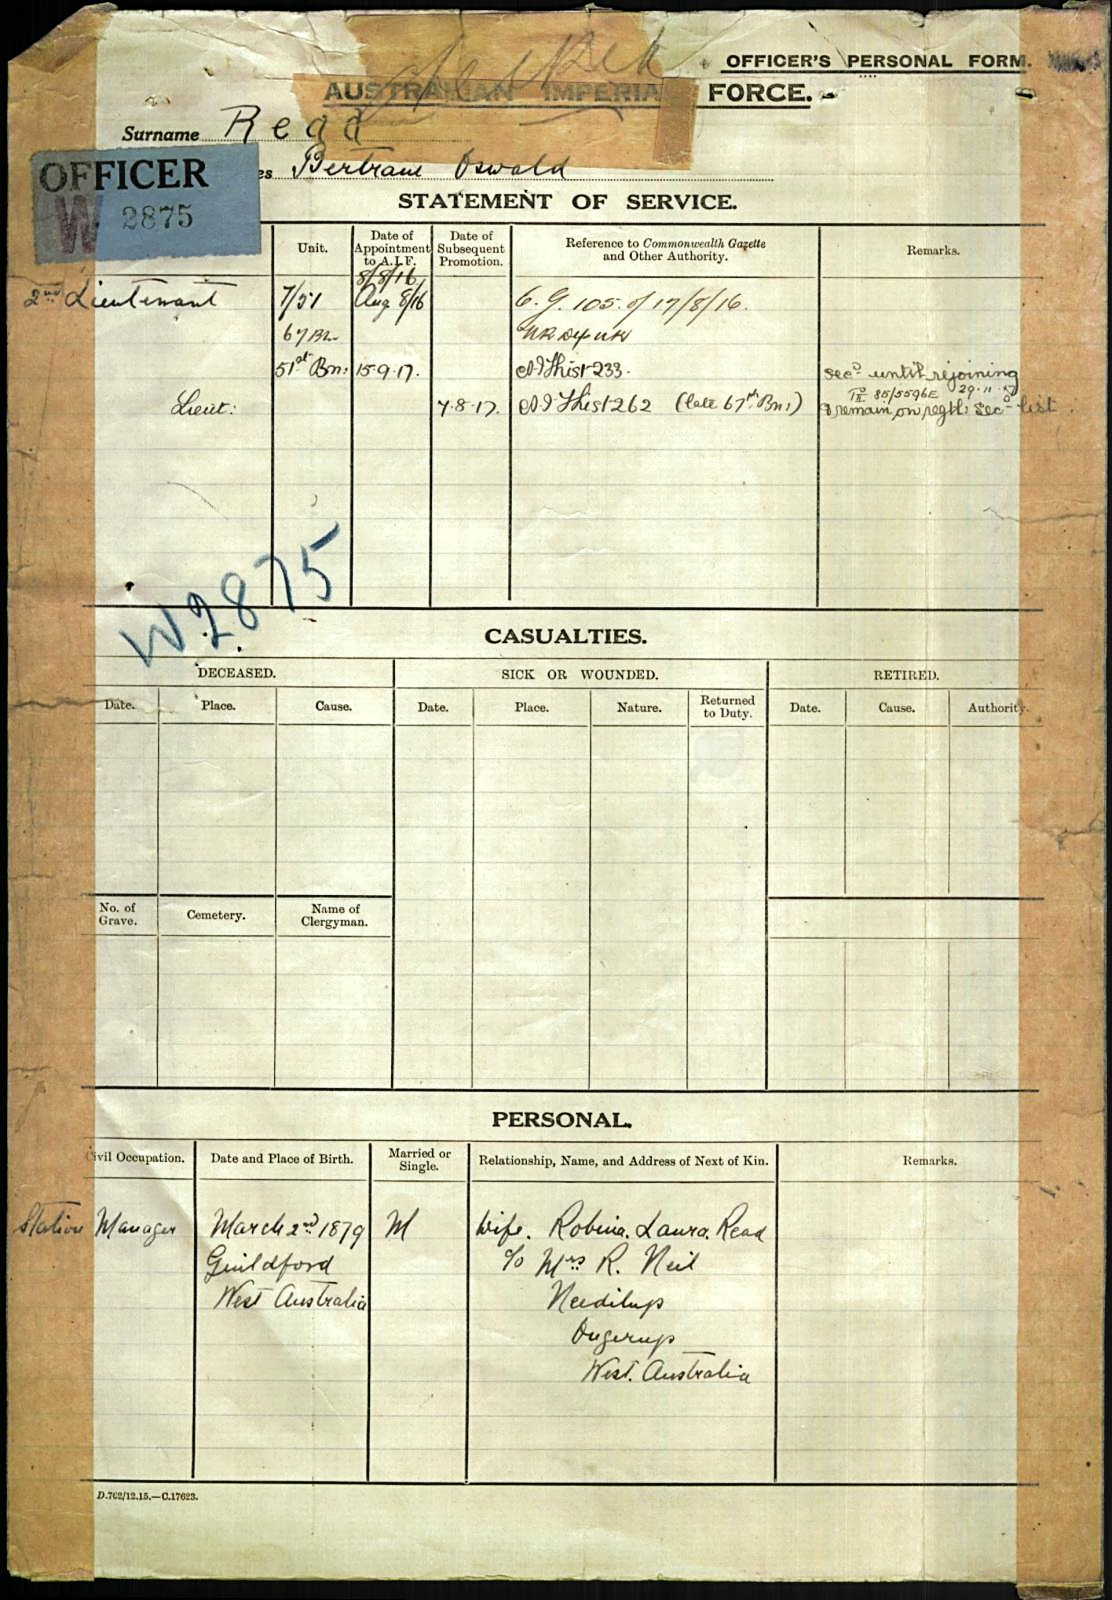 OFFICER'S PERSONAL FORM.
AUSTRALIAN IMPERIAL FORCE.
Surname Read
es Bertram Oswald
OFFICER
W 2875
STATEMENT OF SERVICE.
Unit. Date of Appointment to A.I.F. Date of Subsequent Promotion. Reference to Commonwealth Gazette and Other Authority. Remarks.
8/8/16
2nd Lieutenant 7/51 Aug 8/16 C.G. 105 of 17/8/16.
67 Bn
51st Bn: 15.9.17. 233. secd until rejoining
85/5596E 29.11.17
Lieut: 7.8.17. 262 (late 67th Bn:) & remain on regtl: secd list
W2875
CASUALTIES.
DECEASED. SICK OR WOUNDED. RETIRED.
Date. Place. Cause. Date. Place. Nature. Returned to Duty. Date. Cause. Authority.
No. of Grave. Cemetery. Name of Clergyman.
PERSONAL.
Civil Occupation. Date and Place of Birth. Married or Single. Relationship, Name, and Address of Next of Kin. Remarks.
Station Manager March 2nd 1879 M Wife. Robina. Laura. Read
Guildford c/o Mrs R. Neil
West Australia Needilup
Ongerup
West. Australia
D.762/12.15.—C.17623.